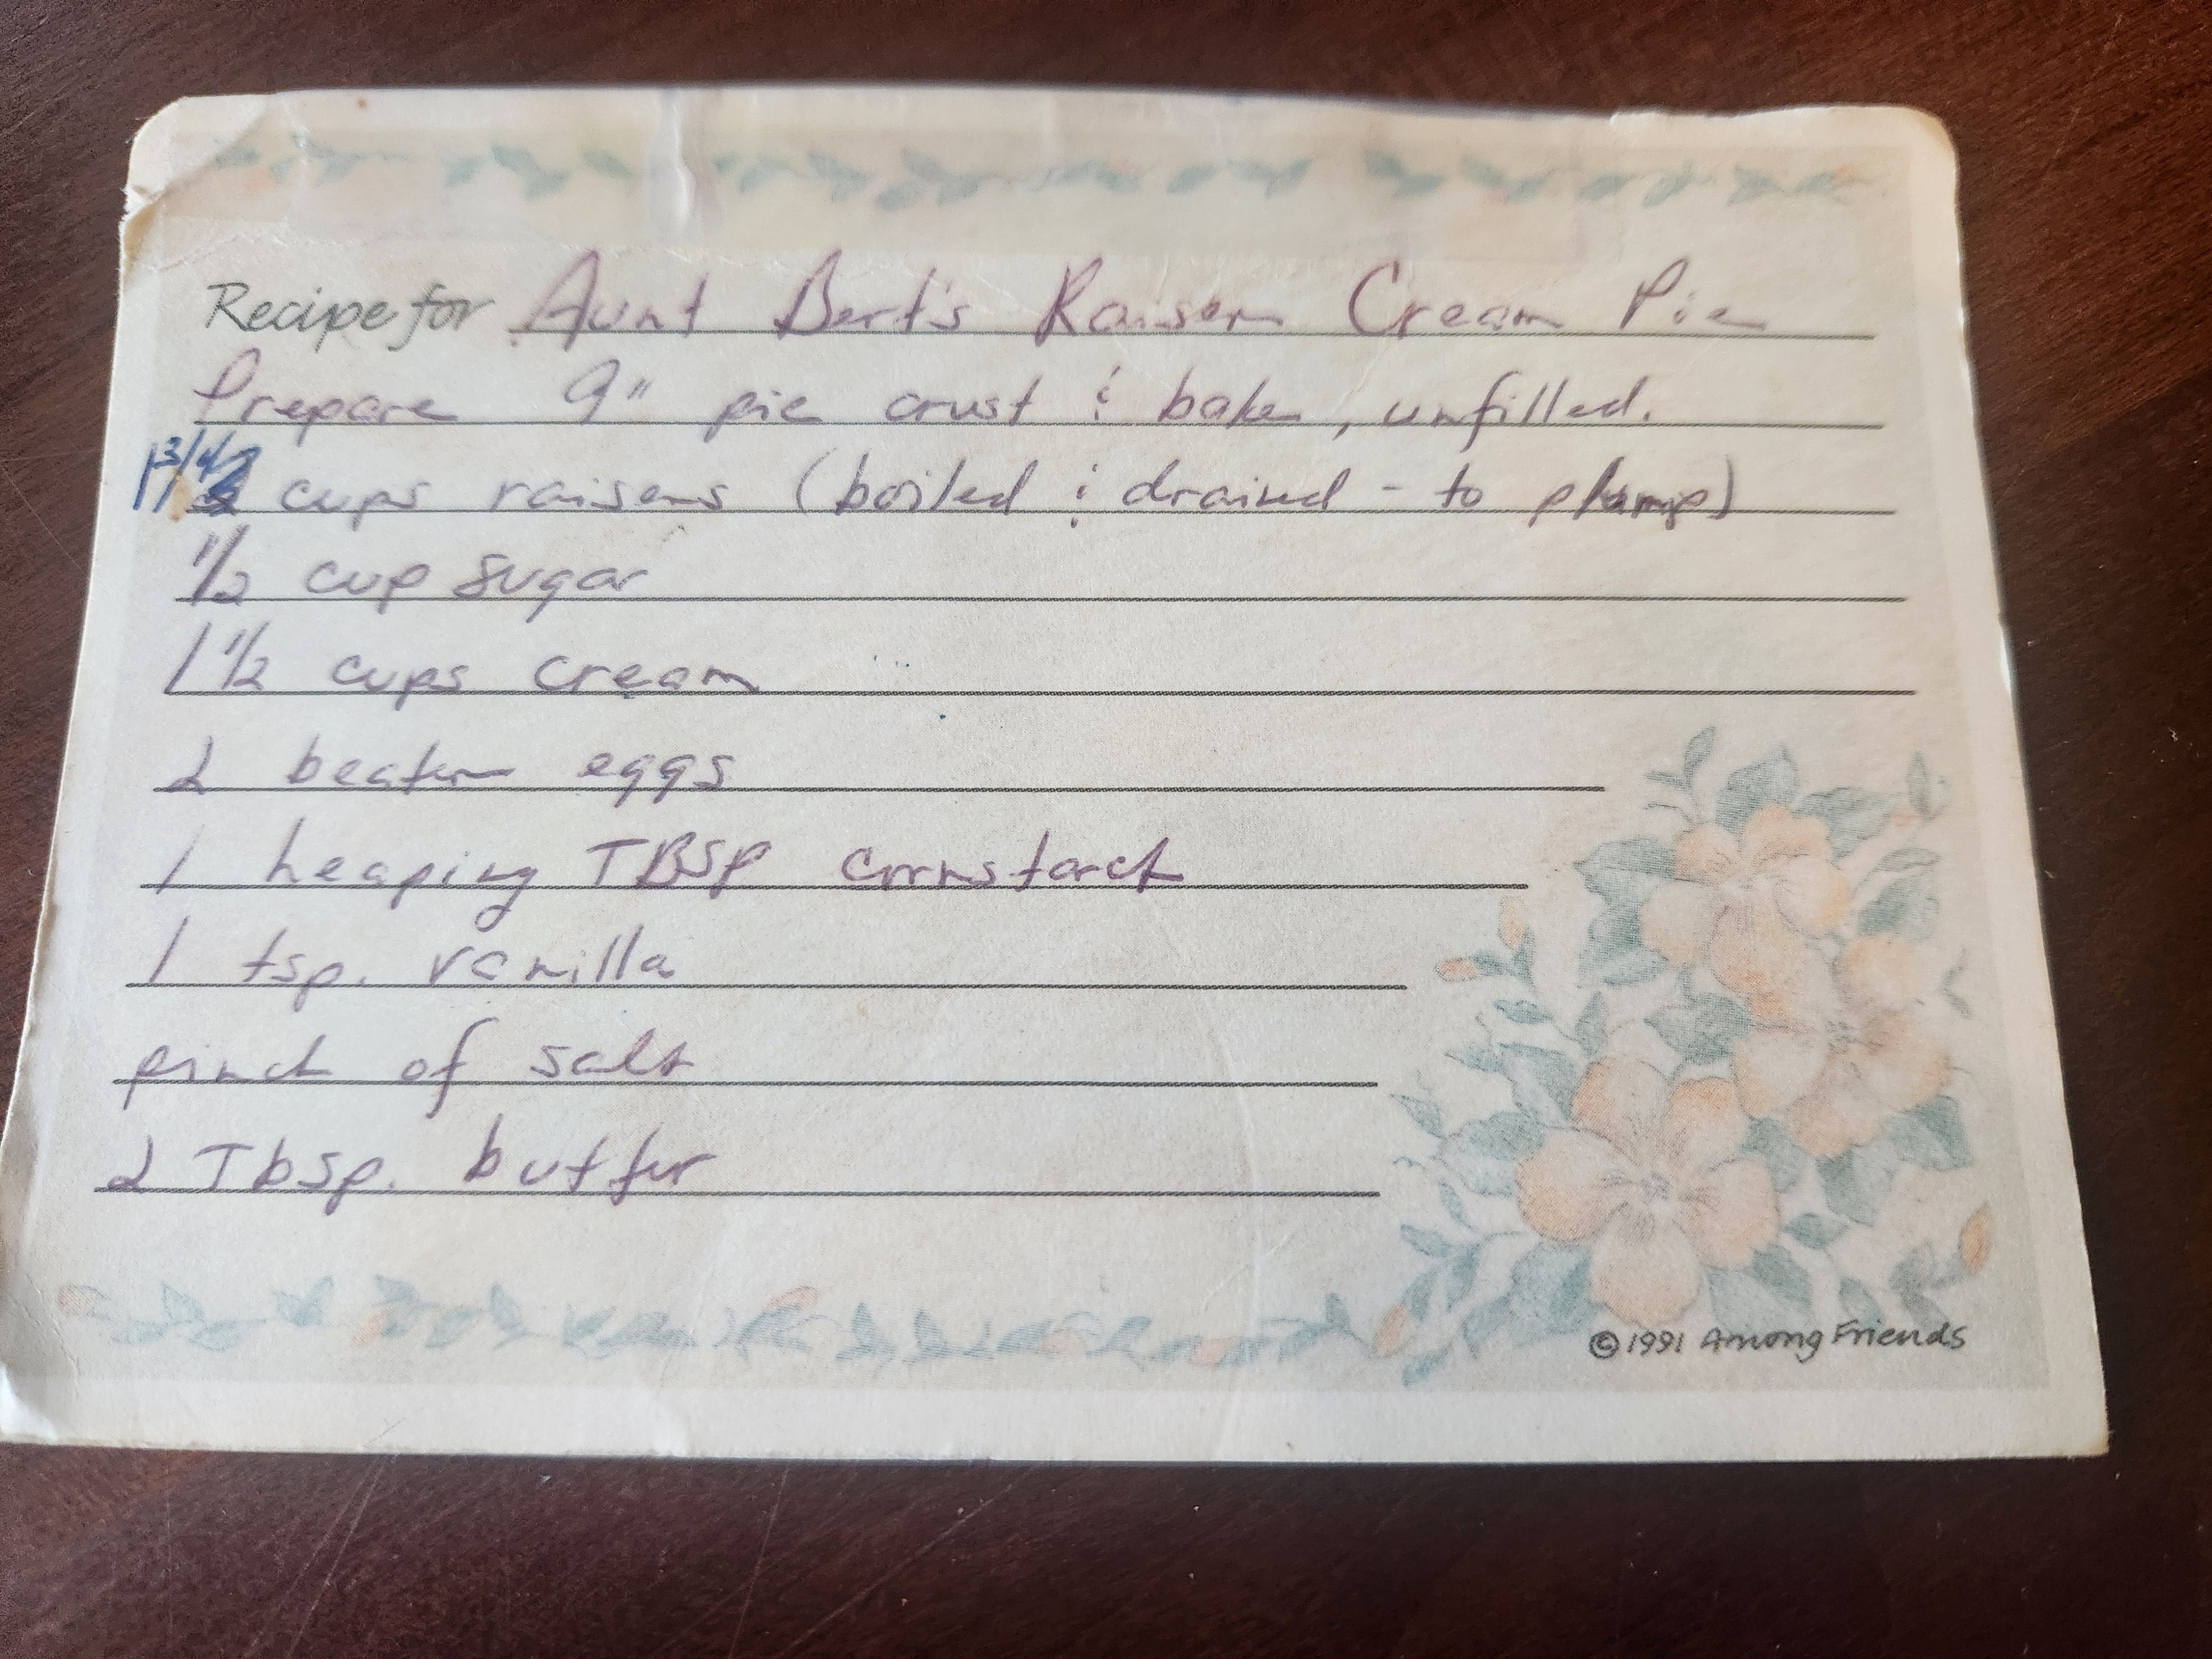 Recipe for Aunt Bert's Raisen Cream Pie
Prepare 9" pie crust & bake, unfilled.
1 3/4 cups raisens (boiled & drained - to plump)
1/2 cup sugar
1 1/2 cups cream
2 beaten eggs
1 heaping TBSP cornstarch
1 tsp. vanilla
pinch of salt
2 Tbsp. butter
©1991 Among Friends